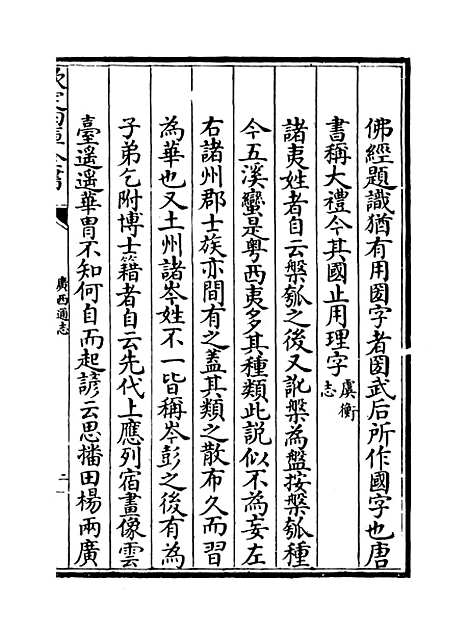 佛經題識猶有用圀字者圀武后所作國字也唐
書稱大禮今其國止用理字虞衡志
諸夷姓者自云槃瓠之後又訛槃為盤按槃瓠種
今五溪蠻是粤西夷多其種類此説似不為妄左
右諸州郡士族亦間有之蓋其類之散布久而習
為華也又土州諸岑姓不一皆稱岑彭之後有為
子弟乞附博士籍者自云先代上應列宿畫像雲
臺遥遥華胄不知何自而起諺云思播田楊兩廣
欽定四庫全書
廣西通志
二